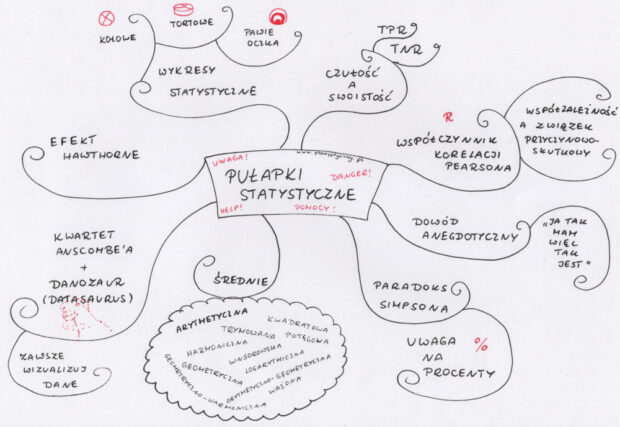 KOŁOWE
TORTOWE
PAWIE
OCZKA
WYKRESY
STATYSTYCZNE
TPR
TNR
CZUŁOŚĆ
A
SWOISTOŚĆ
R
WSPÓŁCZYNNIK
KORELACJI
PEARSONA
WSPÓŁZALEŻNOŚĆ
A ZWIĄZEK
PRZYCZYNOWO-
SKUTKOWY
EFEKT
HAWTHORNE
UWAGA!
PUŁAPKI
STATYSTYCZNE
DANGER!
HELP!
POMOCY!
DOWÓD
ANEGDOTYCZNY
"JA TAK
MAM
WIĘC
TAK
JEST"
KWARTET
ANSCOMBE'A
+
DANOZAUR
(DATASAURUS)
ZAWSZE
WIZUALIZUJ
DANE
ŚREDNIE
ARYTMETYCZNA
KWADRATOWA
TRYMOWANA
POTĘGOWA
HARMONICZNA
WINSOROWSKA
GEOMETRYCZNA
LOGARYTMICZNA
GEOMETRYCZNO-HARMONICZNA
ARYTMETYCZNO-GEOMETRYCZNA
WAŻONA
PARADOKS
SIMPSONA
UWAGA %
NA
PROCENTY